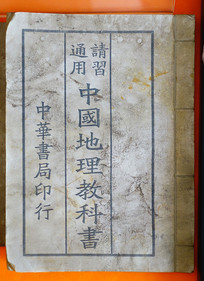 講習
適用
中國地理教科書
中華書局印行